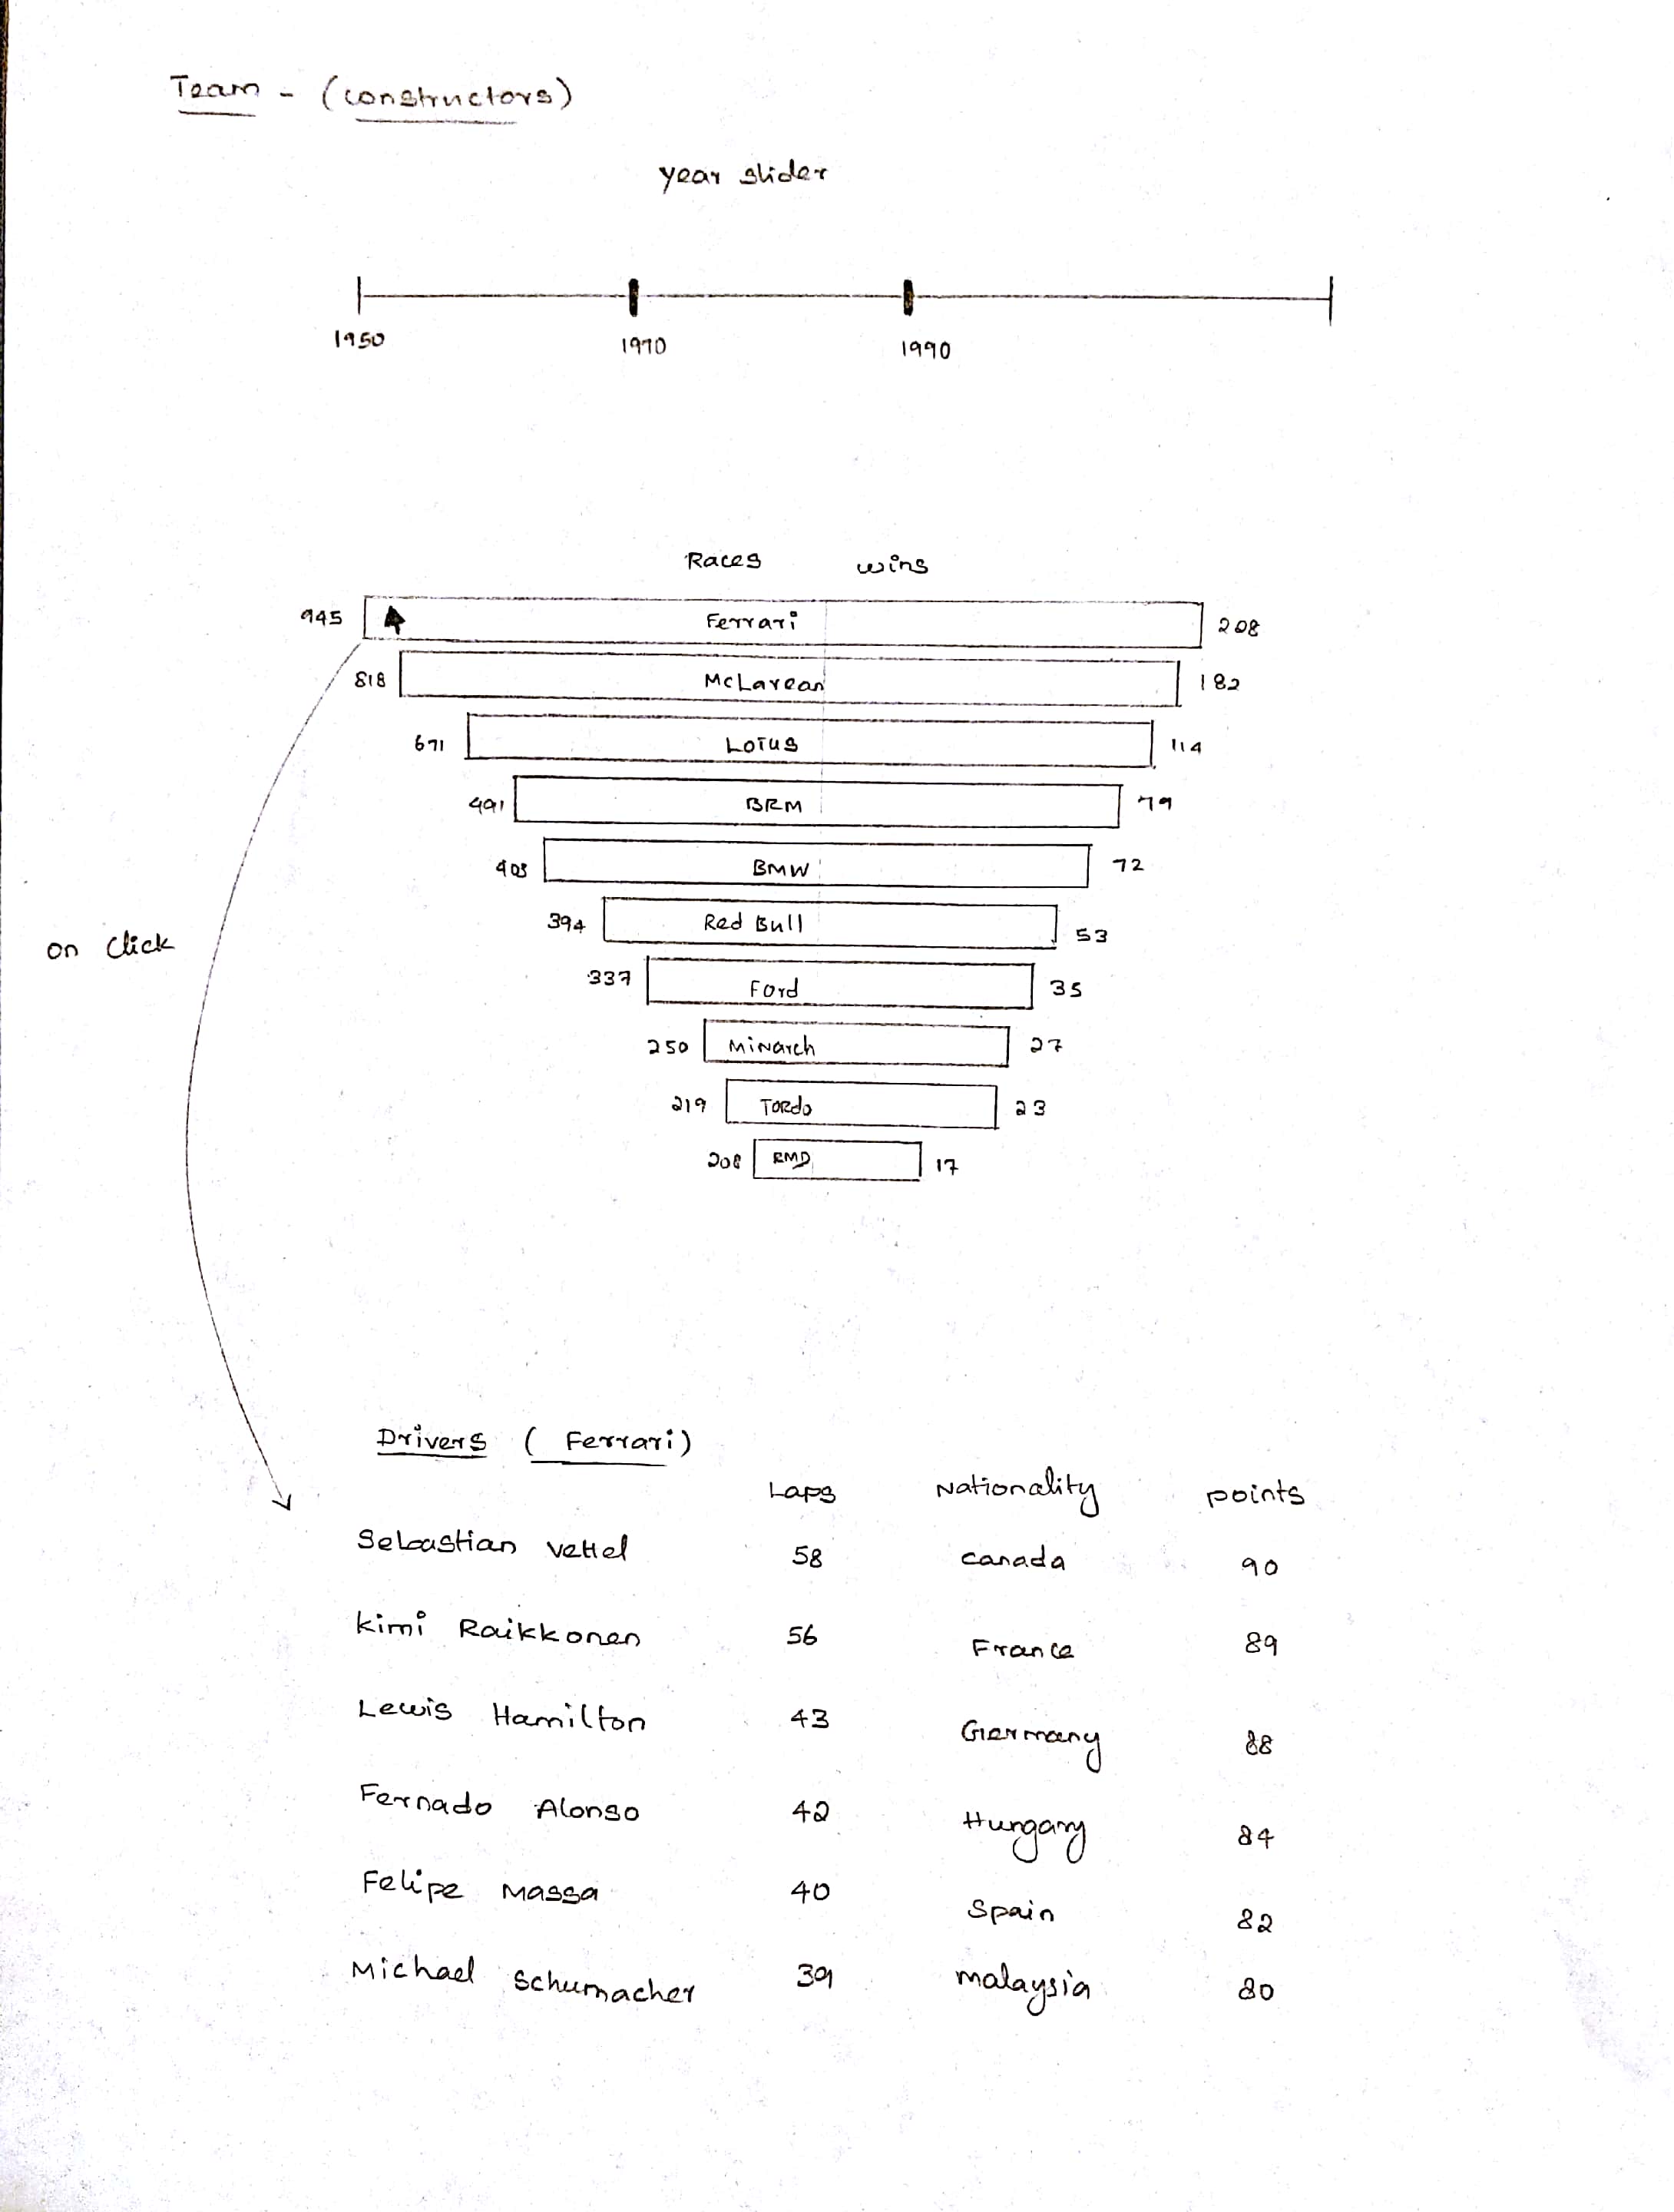 Team - (constructors)
year slider
1950 1970 1990
Races wins
945 Ferrari 208
818 McLarean 182
671 Lotus 114
491 BRM 79
BMW 72
394 Red Bull 53
337 Ford 35
250 Minarch 27
219 23
208 RMD 17
on Click
Drivers (Ferrari)
Laps Nationality points
Sebastian vettel 58 canada 90
kimi Raikkonen 56 France 89
Lewis Hamilton 43 Germany 88
Fernado Alonso 42 Hungary 84
Felipe Massa 40 Spain 82
Michael Schumacher 39 malaysia 80